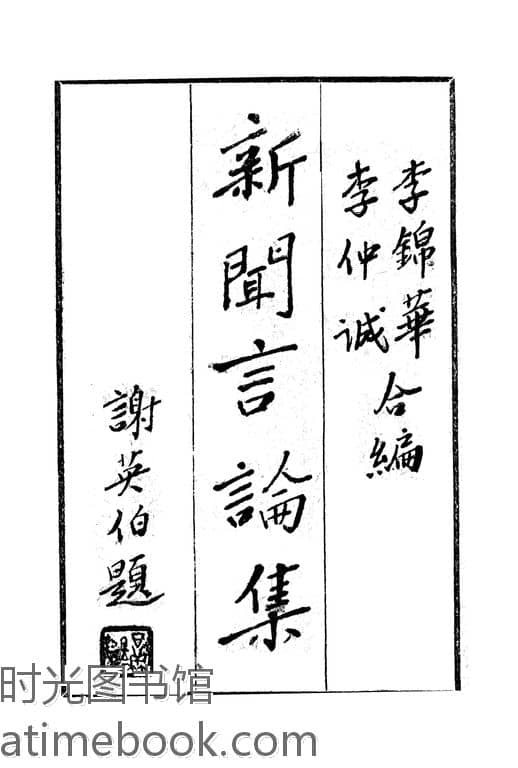 李錦華
李仲誠
合編
新聞言論集
謝英伯題
时光图书馆
atimebook.com